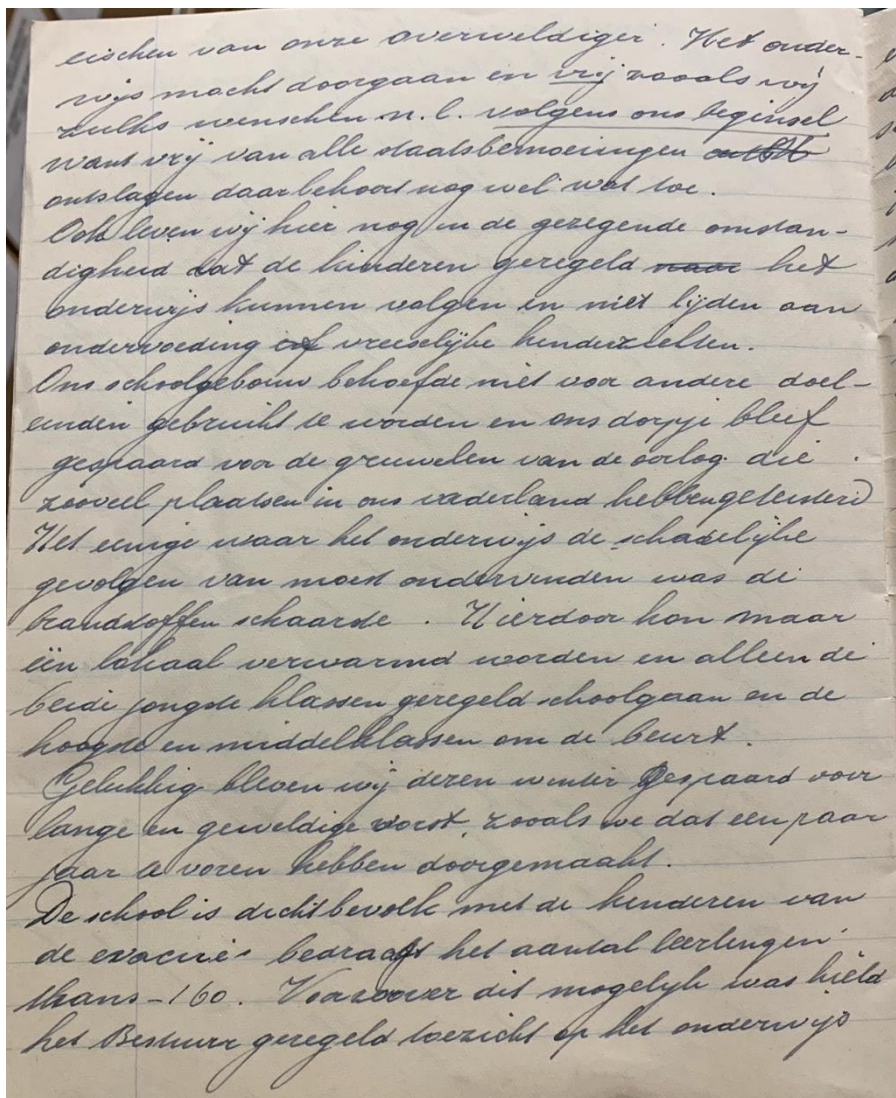 eischen van onze overweldiger. Het onder-
wijs mocht doorgaan en vrij zooals wij
zulks wenschen n.l. volgens ons beginsel
want vrij van alle staatsbemoeiingen
ontslagen daar behoort nog wel wat toe.
Ook leven wij hier nog in de gezegende omstan-
digheid dat de kinderen geregeld naar het
onderwijs kunnen volgen en niet lijden aan
ondervoeding of vreeselijke kinderziekten.
Ons schoolgebouw behoefde niet voor andere doel-
einden gebruikt te worden en ons dorpje bleef
gespaard voor de gruwelen van de oorlog die
zooveel plaatsen in ons vaderland hebben geteisterd
Het eenige waar het onderwijs de schadelijke
gevolgen van moest ondervinden was de
brandstoffen schaarste. Hierdoor kon maar
één lokaal verwarmd worden en alleen de
beide jongste klassen geregeld schoolgaan en de
hoogste en middelklassen om de beurt.
Gelukkig bleven wij dezen winter gespaard voor
lange en geweldige vorst, zooals we dat een paar
jaar te voren hebben doorgemaakt.
De school is dicht bevolk met de kinderen van
de evacué's bedraagt het aantal leerlingen
thans - 160. Voorzoover dit mogelijk was hield
het Bestuur geregeld toezicht op het onderwijs